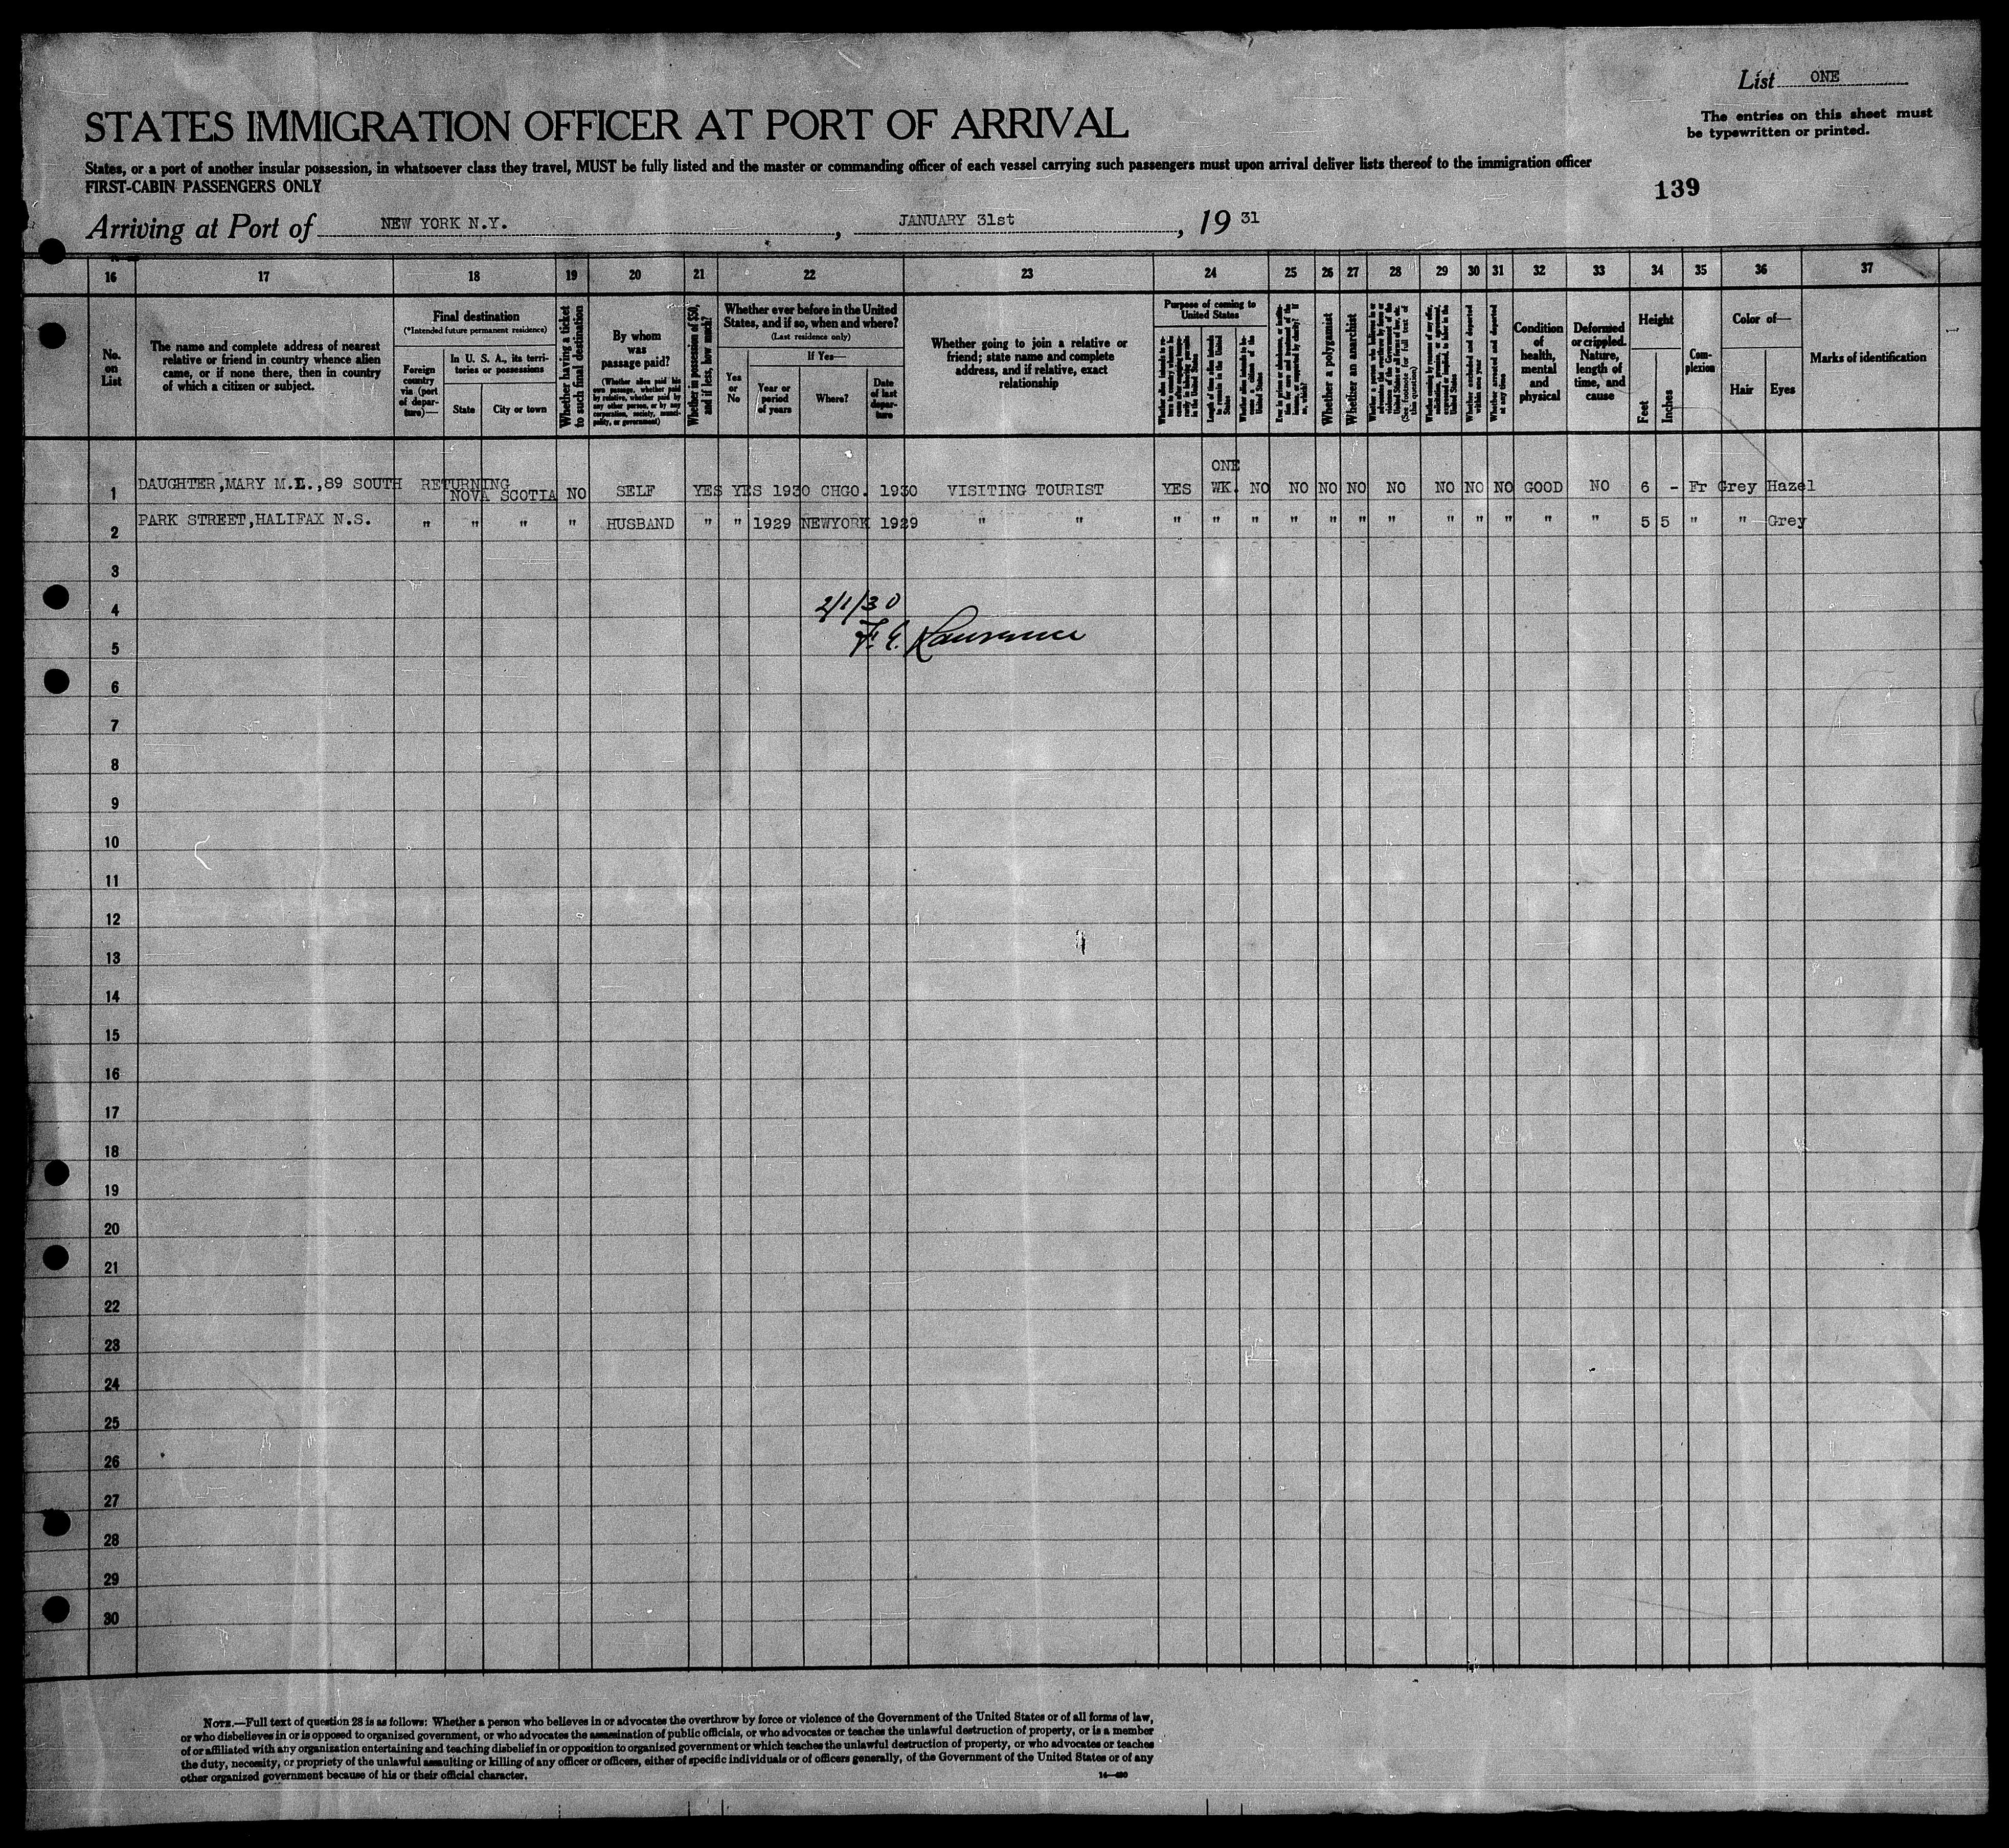 List ONE
STATES IMMIGRATION OFFICER AT PORT OF ARRIVAL
The entries on this sheet must
be typewritten or printed.
States, or a port of another insular possession, in whatsoever class they travel, MUST be fully listed and the master or commanding officer of each vessel carrying such passengers must upon arrival deliver lists thereof to the immigration officer
FIRST-CABIN PASSENGERS ONLY
139
Arriving at Port of NEW YORK N.Y. , JANUARY 31st , 19 31
16 17 18 19 20 21 22 23 24 25 26 27 28 29 30 31 32 33 34 35 36 37
No.
on
List
The name and complete address of nearest
relative or friend in country whence alien
came, or if none there, then in country
of which a citizen or subject.
Final destination
(*Intended future permanent residence)
Foreign
country
via (port
of depar-
ture)—
In U. S. A., its terri-
tories or possessions
State
City or town
Whether having a ticket
to such final destination
By whom
was
passage paid?
(Whether alien paid his
own passage, whether paid
by relative, whether paid by
any other person, or by any
corporation, society, munici-
pality, or government)
Whether in possession of $50,
and if less, how much?
Whether ever before in the United
States, and if so, when and where?
(Last residence only)
Yes
or
No
If Yes—
Year or
period
of years
Where?
Date
of last
depar-
ture
Whether going to join a relative or
friend; state name and complete
address, and if relative, exact
relationship
Purpose of coming to
United States
Length of time alien intends
to remain in the United
States
Whether alien intends to be-
come a citizen of the
United States
Whether a polygamist
Whether an anarchist
(See footnote for full text of
this question)
Whether excluded and deported
within one year
Whether arrested and deported
at any time
Condition
of
health,
mental
and
physical
Deformed
or crippled.
Nature,
length of
time, and
cause
Height
Feet
Inches
Com-
plexion
Color of—
Hair
Eyes
Marks of identification
ONE
1 DAUGHTER,MARY M.L.,89 SOUTH RETURNING
NOVA SCOTIA NO SELF YES YES 1930 CHGO. 1930 VISITING TOURIST YES WK. NO NO NO NO NO NO NO NO GOOD NO 6 - Fr Grey Hazel
2 PARK STREET,HALIFAX N.S. " " " " HUSBAND " " 1929 NEWYORK 1929 " " " " " " " " " " " " " " 5 5 " " Grey
3
4 2/1/30
5 F. E. Lawrence
6
7
8
9
10
11
12
13
14
15
16
17
18
19
20
21
22
23
24
25
26
27
28
29
30
NOTE.—Full text of question 28 is as follows: Whether a person who believes in or advocates the overthrow by force or violence of the Government of the United States or of all forms of law,
or who disbelieves in or is opposed to organized government, or who advocates the assassination of public officials, or who advocates or teaches the unlawful destruction of property, or is a member
of or affiliated with any organization entertaining and teaching disbelief in or opposition to organized government or which teaches the unlawful destruction of property, or who advocates or teaches
the duty, necessity, or propriety of the unlawful assaulting or killing of any officer or officers, either of specific individuals or of officers generally, of the Government of the United States or of any
other organized government because of his or their official character.